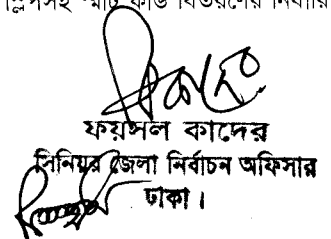 স্লিপসহ স্মার্ট কার্ড বিতরণের নির্ধারি
ফয়সল কাদের
সিনিয়র জেলা নির্বাচন অফিসার
ঢাকা।